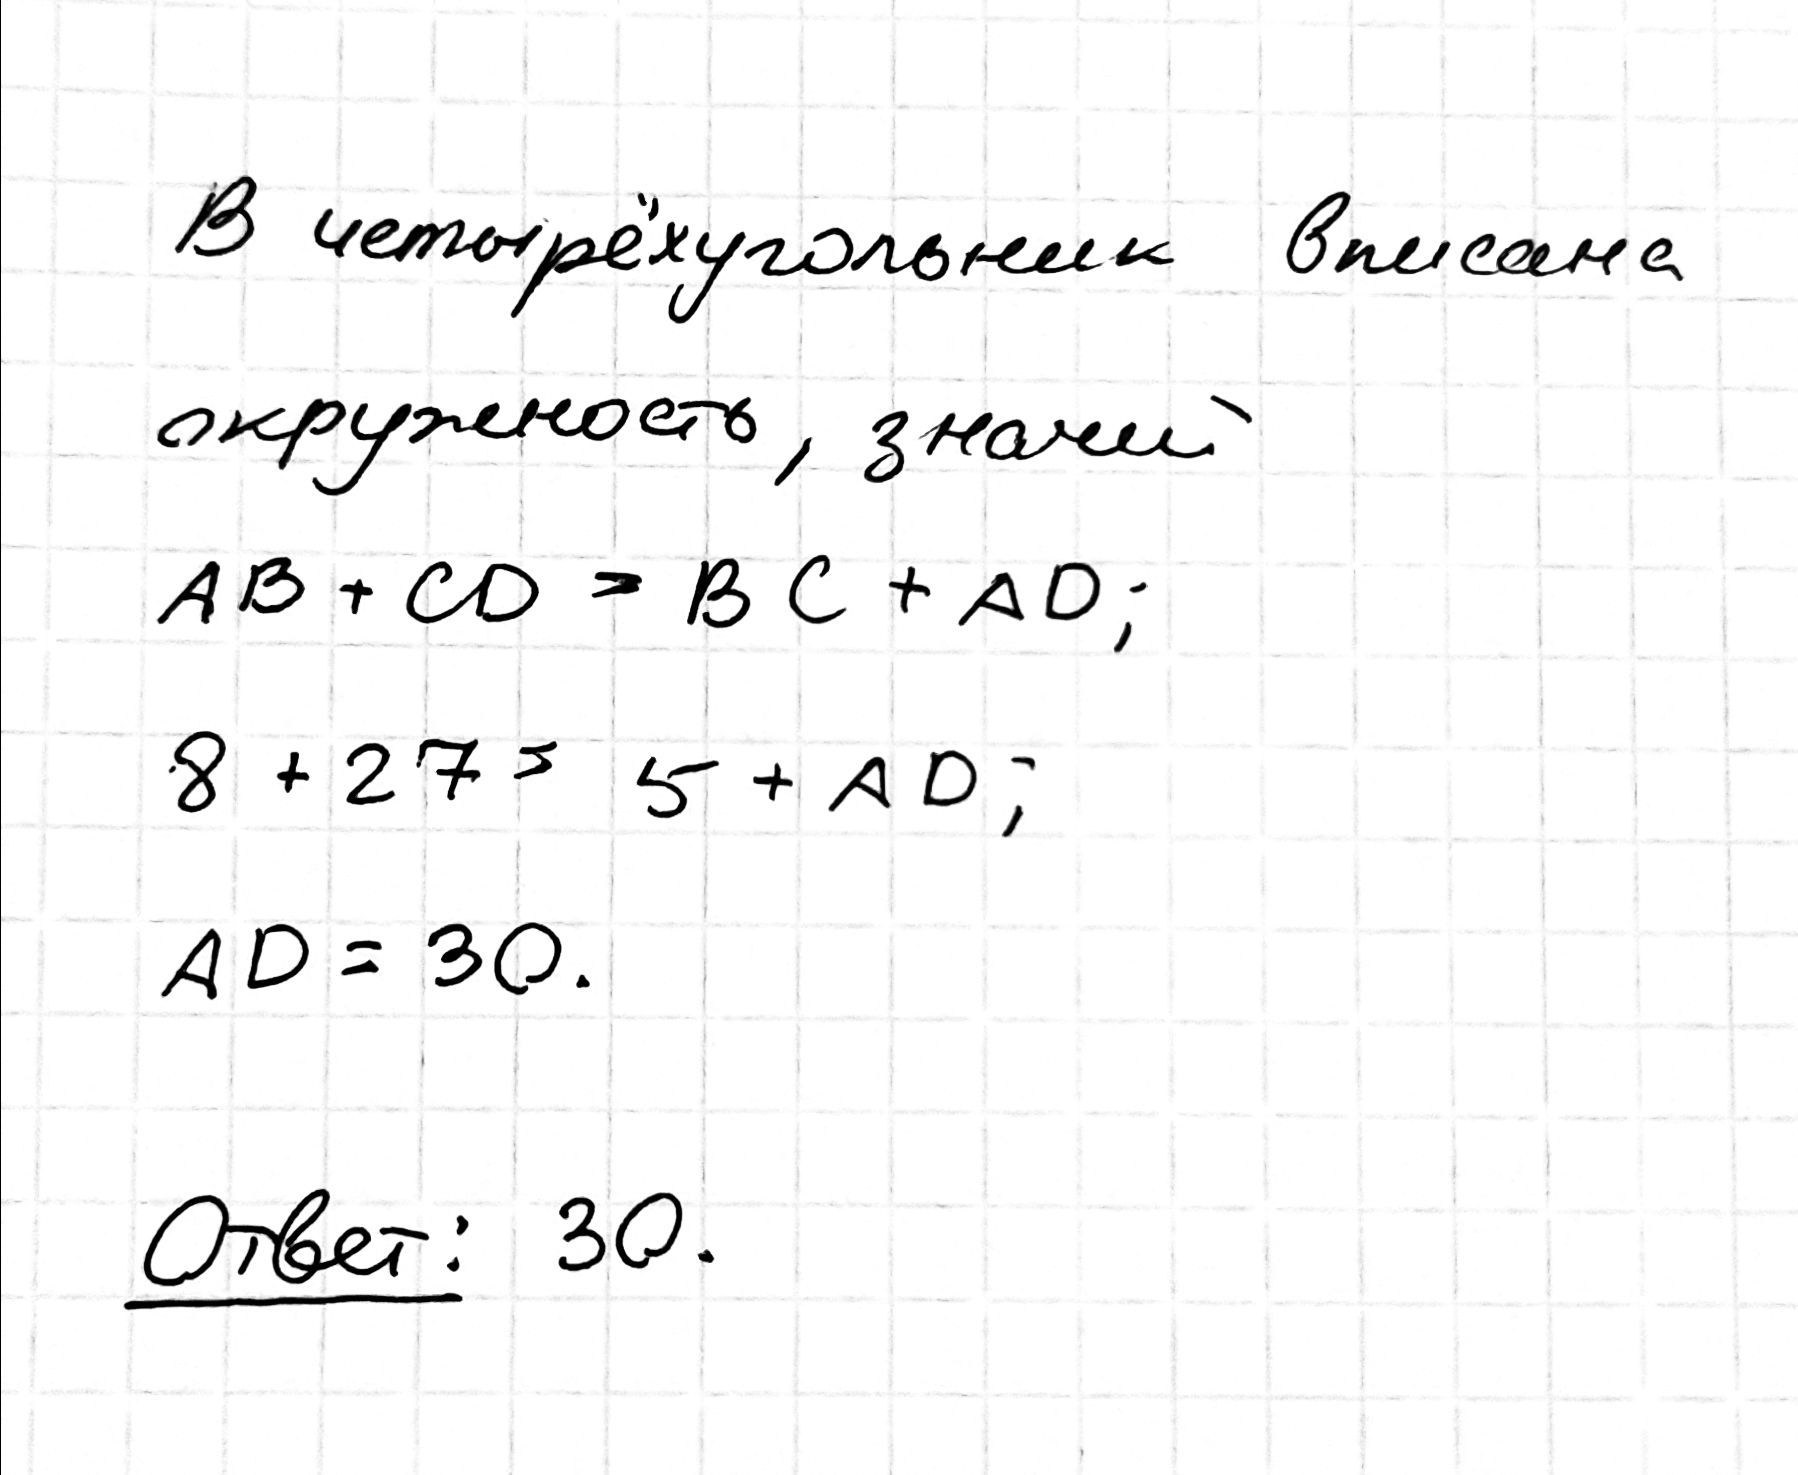 В четырёхугольник вписана
окружность, значит
AB + CD = BC + AD;
8 + 27 = 5 + AD;
AD = 30.
Ответ: 30.